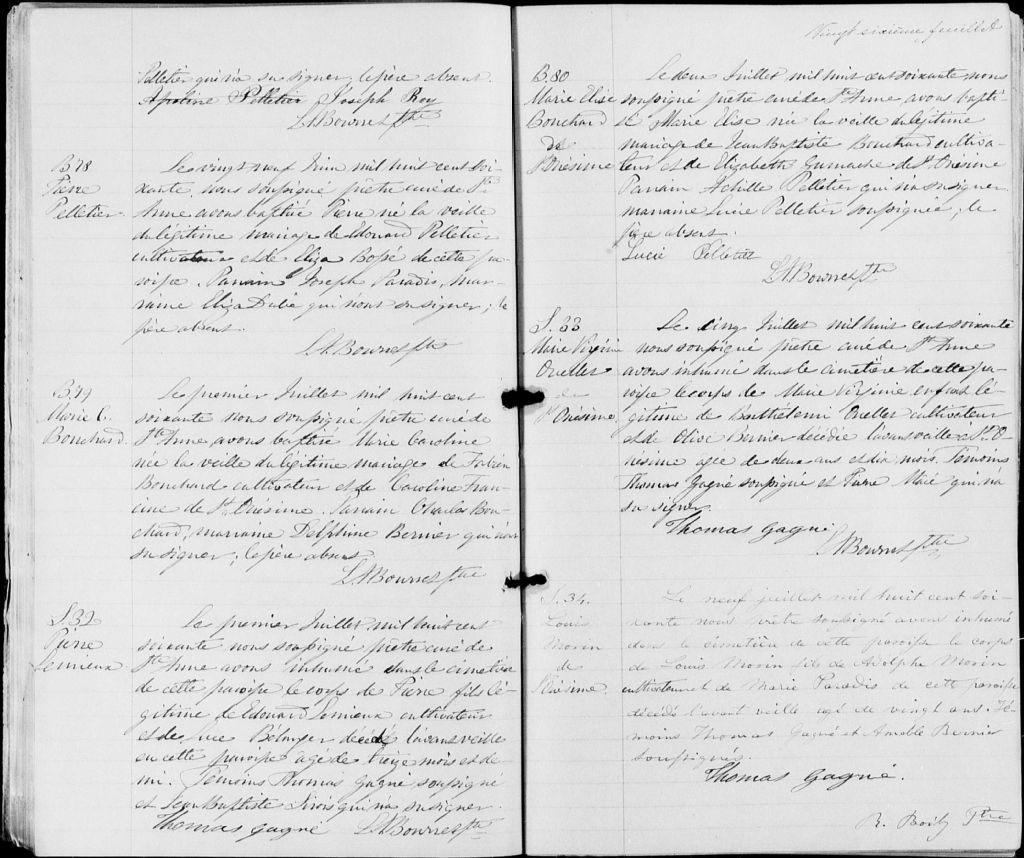 Pelletier qui n'a su signer, le père absent.
Apoline Pelletier Joseph Roy
Ptre
B 78
Pierre
Pelletier
Le vingt neuf Juin mil huit cent soi-
xante nous soussigné prêtre curé de Ste
Anne avons baptisé Pierre né la veille
du légitime mariage de Edouard Pelletier
cultivateur et de Eliza Bossé de cette pa-
roisse. Parrain Joseph Paradis, mar-
raine Eliza Dubé qui n'ont su signer; le
père absent.
Ptre
B. 79
Marie C.
Bouchard
Le premier Juillet mil huit cent
soixante nous soussigné prêtre curé de
Ste Anne avons baptisé Marie Caroline
née la veille du légitime mariage de Fabien
Bouchard cultivateur et de Caroline Fran-
cine de St Onésime. Parrain Charles Bou-
chard, marraine Delphine Bernier qui n'ont
su signer; le père absent
Ptre
S. 32
Pierre
Lemieux
Le premier Juillet mil huit cent
soixante nous soussigné prêtre curé de
Ste Anne avons inhumé dans le cimetière
de cette paroisse le corps de Pierre fils lé-
gitime de Edouard Lemieux cultivateur
et de Luce Bélanger décédé l'avant veille
en cette paroisse agé de treize mois et de-
mi. Témoins Thomas Gagné soussigné
et Jean Baptiste Sirois qui n'a su signer.
Thomas Gagné Ptre
Vingt sixième feuillet
B. 80
Marie Elise
Bouchard
de
St Onésime
Le deux Juillet mil huit cent soixante nous
soussigné prêtre curé de Ste Anne avons bapti-
sé Marie Elise née la veille du légitime
mariage de Jean Baptiste Bouchard cultiva-
teur et de Elizabeth Gamache de St Onésime
Parrain Achille Pelletier qui n'a su signer
marraine Lucie Pelletier soussignée; le
père absent.
Lucie Pelletier
Ptre
S. 33
Marie Virginie
Ouellet
de
St Onésime
Le cinq Juillet mil huit cent soixante
nous soussigné prêtre curé de Ste Anne
avons inhumé dans le cimetière de cette pa-
roisse le corps de Marie Virginie enfant lé-
gitime de Barthelemi Ouellet cultivateur
et de Olive Bernier décédée l'avant veille à St O-
nésime agée de deux ans et dix mois. Témoins
Thomas Gagné soussigné et Pierre qui n'a
su signer.
Thomas Gagné
Ptre
S. 34.
Louis
Morin
de
St Onésime.
Le neuf juillet mil huit cent soi-
xante nous prêtre soussigné avons inhumé
dans le cimetière de cette paroisse le corps
de Louis Morin fils de Adolphe Morin
cultivateur et de Marie Paradis de cette paroisse
décédé l'avant veille agé de vingt ans. Té-
moins Thomas Gagné et Amable Bernier
soussignés.
Thomas Gagné.
R. Boily Ptre